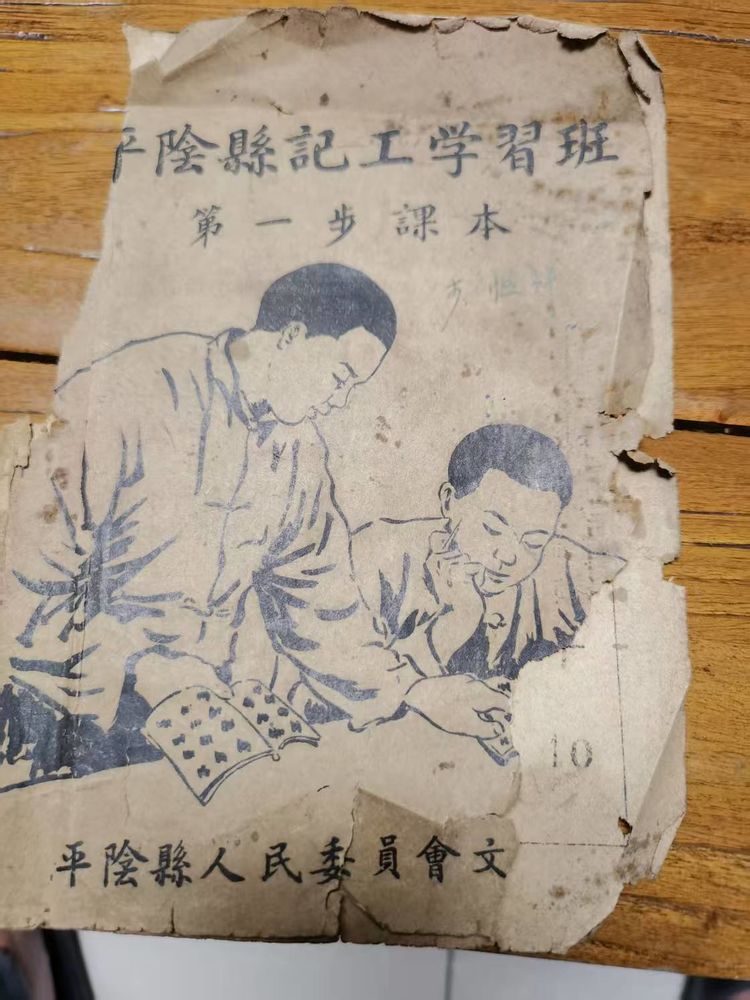 平陰縣記工学習班
第一步課本
10
平陰縣人民委員會文